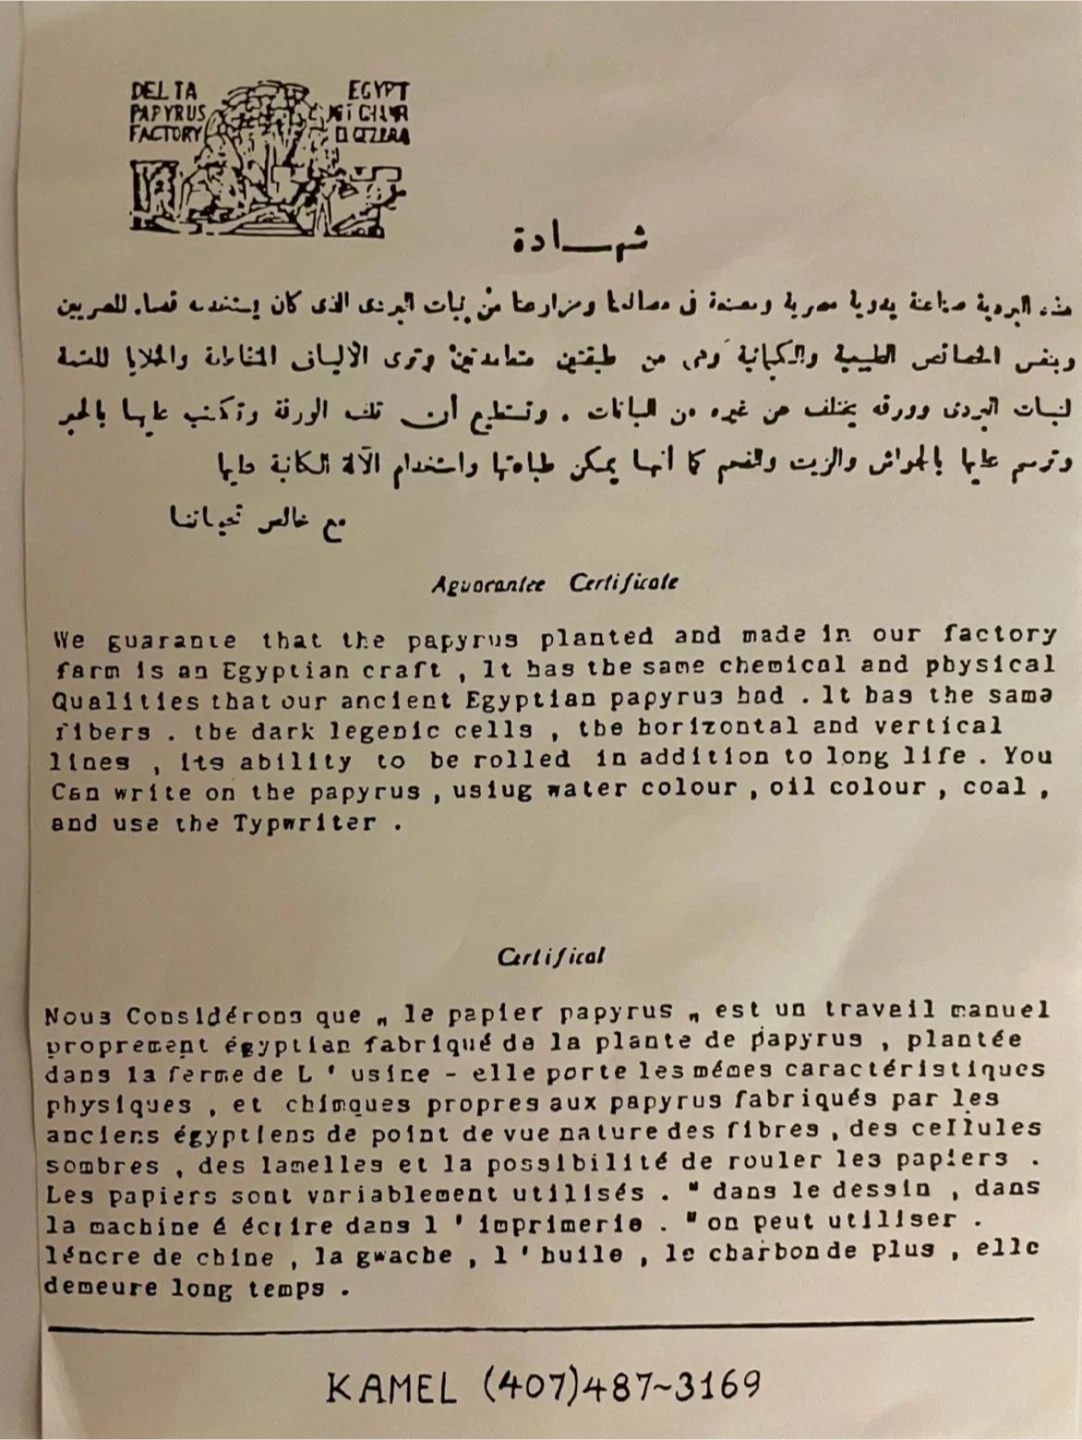 DELTA
PAPYRUS
FACTORY
EGYPT
شهـــادة
هذه البردية صناعة يدوية مصرية ومصنعة فى مصانعنا ومزارعنا من نبات البردى الذى كان يستخدمه قدماء المصريين
وبنفس الخصائص الطبيعية والكيمائية وهى من طبقتين متعامدتين وترى الألياف والخلايا
لنبات البردى وورقه يختلف عن غيره من النباتات . وتستطيع أن تلف الورقة وتكتب عليها بالحبر
وترسم عليها والزيت والفحم كما أنها يمكن طباعتها واستخدام الآلة الكاتبة عليها
مع خالص تحياتنا
Aguarantee Certificate
We guarante that the papyrus planted and made in our factory
farm is an Egyptian craft , It has the same chemical and physical
Qualities that our ancient Egyptian papyrus had . It has the same
fibers . the dark legenic cells , the horizontal and vertical
lines , its ability to be rolled in addition to long life . You
Can write on the papyrus , usiug water colour , oil colour , coal ,
and use the Typwriter .
Certifical
Nous Considérons que „ le papier papyrus „ est un traveil manuel
proprement égyptian fabriqué de la plante de papyrus , plantée
dans la ferme de L ' usine - elle porte les mémes caractéristiques
physiques , et chimques propres aux papyrus fabriqués par les
anciens égyptiens de point de vue nature des fibres , des cellules
sombres , des lamelles et la possibilité de rouler les papiers .
Les papiers sont variablement utilisés . " dans le dessin , dans
la machine é écrire dans l ' imprimerie . " on peut utiliser .
léncre de chine , la gwache , l ' huile , le charbon de plus , elle
demeure long temps .
KAMEL (407)487~3169